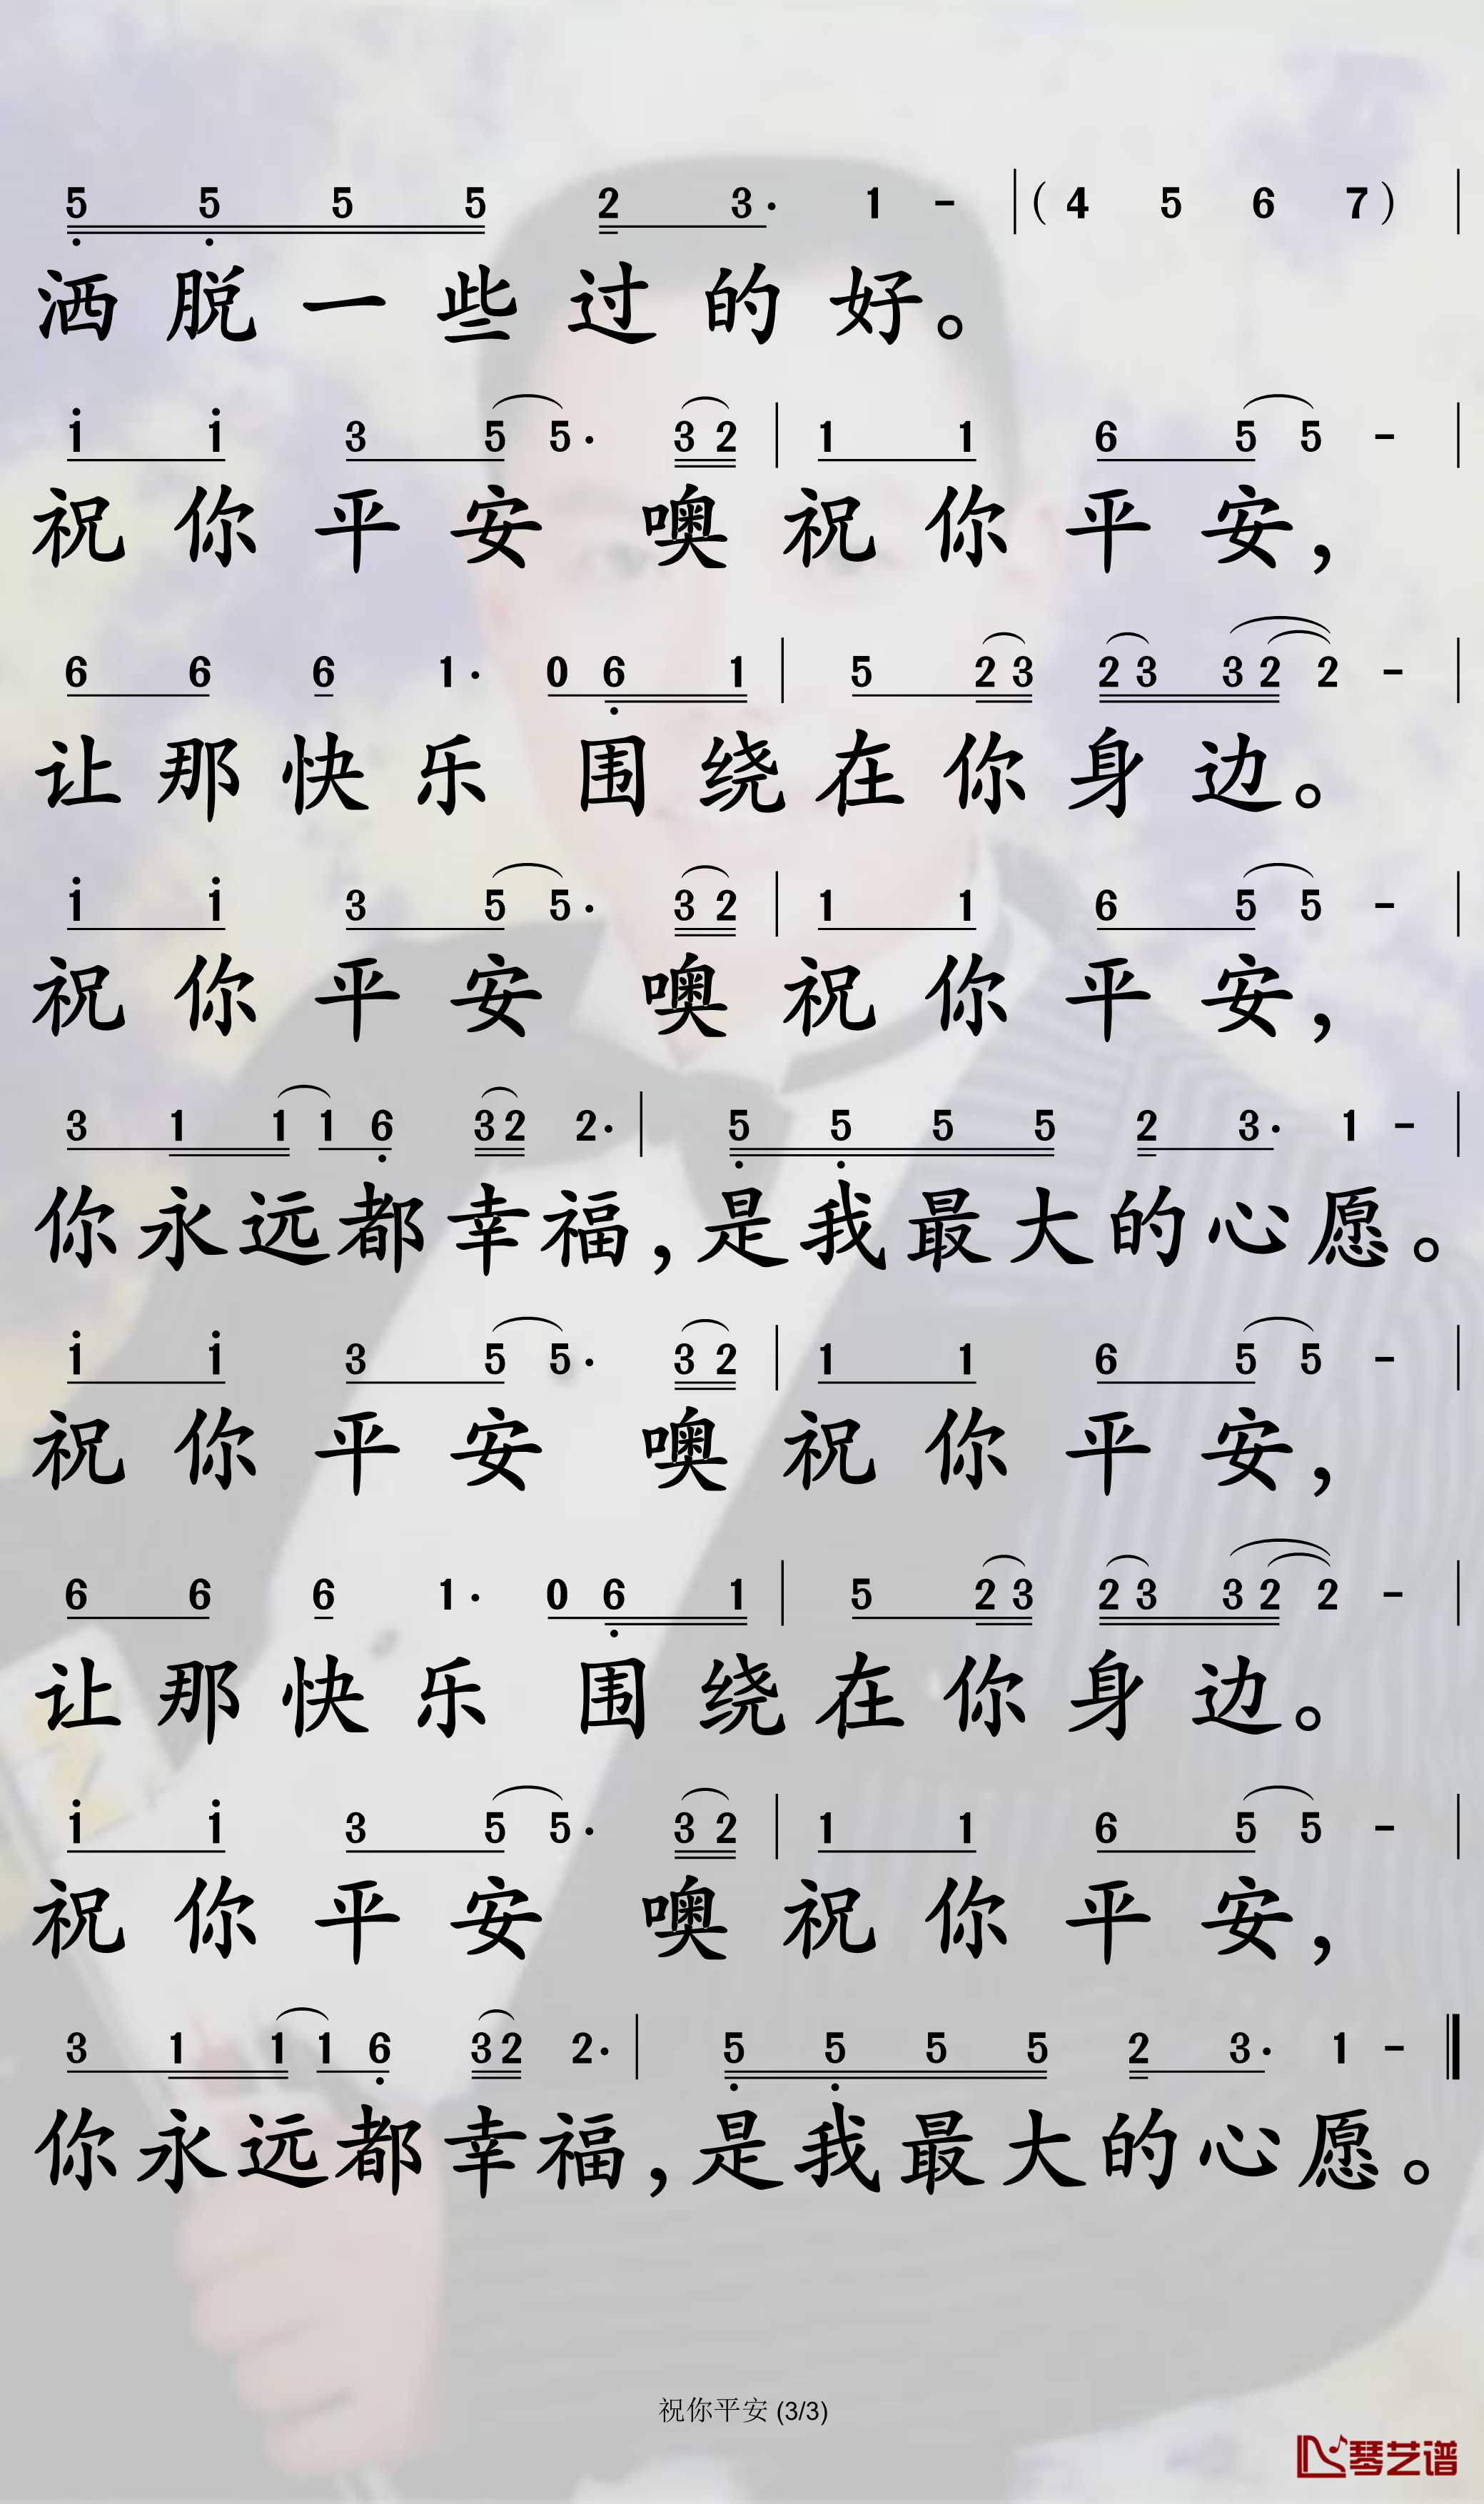 5 5 5 5 2 3· 1 - | ( 4 5 6 7 ) |
洒脱一些过的好。
1 1 3 5 5· 3 2 | 1 1 6 5 5 - |
祝你平安 噢祝你平安，
6 6 6 1· 0 6 1 | 5 2 3 2 3 3 2 2 - |
让那快乐 围绕在你身边。
1 1 3 5 5· 3 2 | 1 1 6 5 5 - |
祝你平安 噢祝你平安，
3 1 1 1 6 3 2 2· | 5 5 5 5 2 3· 1 - |
你永远都幸福，是我最大的心愿。
1 1 3 5 5· 3 2 | 1 1 6 5 5 - |
祝你平安 噢祝你平安，
6 6 6 1· 0 6 1 | 5 2 3 2 3 3 2 2 - |
让那快乐 围绕在你身边。
1 1 3 5 5· 3 2 | 1 1 6 5 5 - |
祝你平安 噢祝你平安，
3 1 1 1 6 3 2 2· | 5 5 5 5 2 3· 1 - ‖
你永远都幸福，是我最大的心愿。
祝你平安 (3/3)
琴艺谱